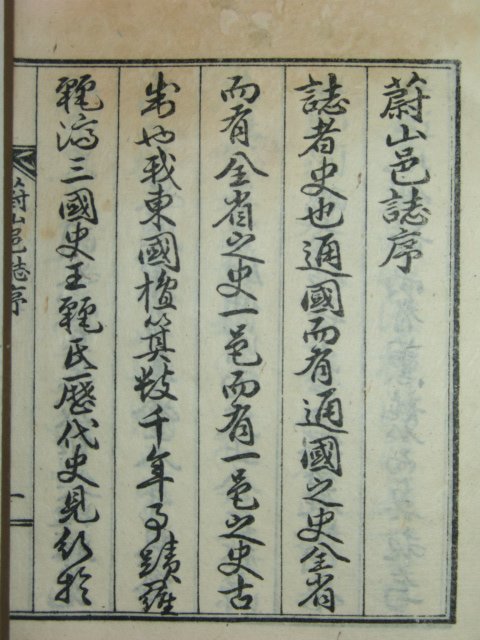 蔚山邑誌序
誌者史也通國而有通國之史全省
而有全省之史一邑而有一邑之史古
制也我東國檀箕數千年事蹟羅
麗濟三國史王麗氏歷代史見行於
蔚山邑誌序
一